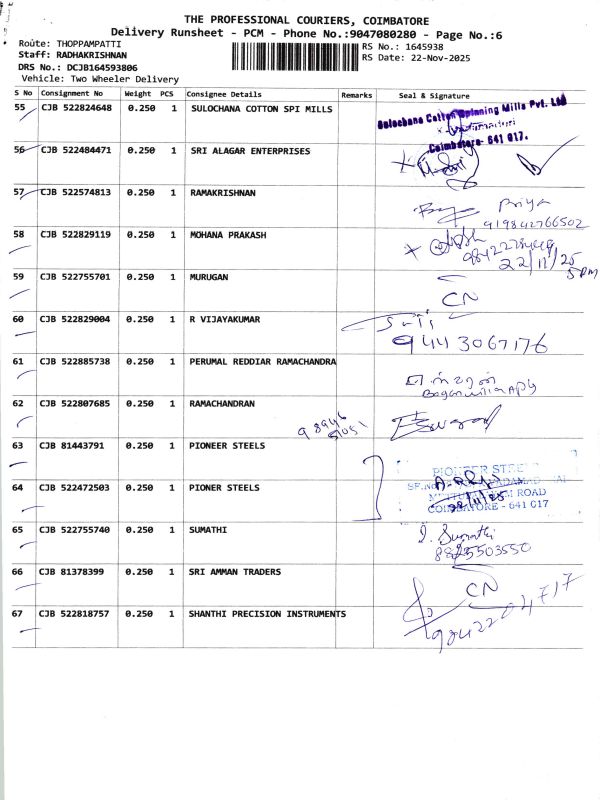 THE PROFESSIONAL COURIERS, COIMBATORE
Delivery Runsheet - PCM - Phone No.:9047080280 - Page No.:6
Route: THOPPAMPATTI
RS No.: 1645938
Staff: RADHAKRISHNAN
RS Date: 22-Nov-2025
DRS No.: DCJB164593806
Vehicle: Two Wheeler Delivery
S No Consignment No Weight PCS Consignee Details Remarks Seal & Signature
55 CJB 522824648 0.250 1 SULOCHANA COTTON SPI MILLS
Sulochana Cotton Spinning Mills Pvt. Ltd
Coimbatore- 641 017.
56 CJB 522484471 0.250 1 SRI ALAGAR ENTERPRISES
57 CJB 522574813 0.250 1 RAMAKRISHNAN
Priya
919842766502
58 CJB 522829119 0.250 1 MOHANA PRAKASH
22/11/25
5 PM
59 CJB 522755701 0.250 1 MURUGAN
CN
60 CJB 522829004 0.250 1 R VIJAYAKUMAR
9443067176
61 CJB 522885738 0.250 1 PERUMAL REDDIAR RAMACHANDRA
62 CJB 522807685 0.250 1 RAMACHANDRAN
98946
51051
63 CJB 81443791 0.250 1 PIONEER STEELS
PIONEER
64 CJB 522472503 0.250 1 PIONER STEELS
ROAD
COIMBATORE - 641 017
65 CJB 522755740 0.250 1 SUMATHI
Sumathi
8825503550
66 CJB 81378399 0.250 1 SRI AMMAN TRADERS
CN
67 CJB 522818757 0.250 1 SHANTHI PRECISION INSTRUMENTS
9842204717